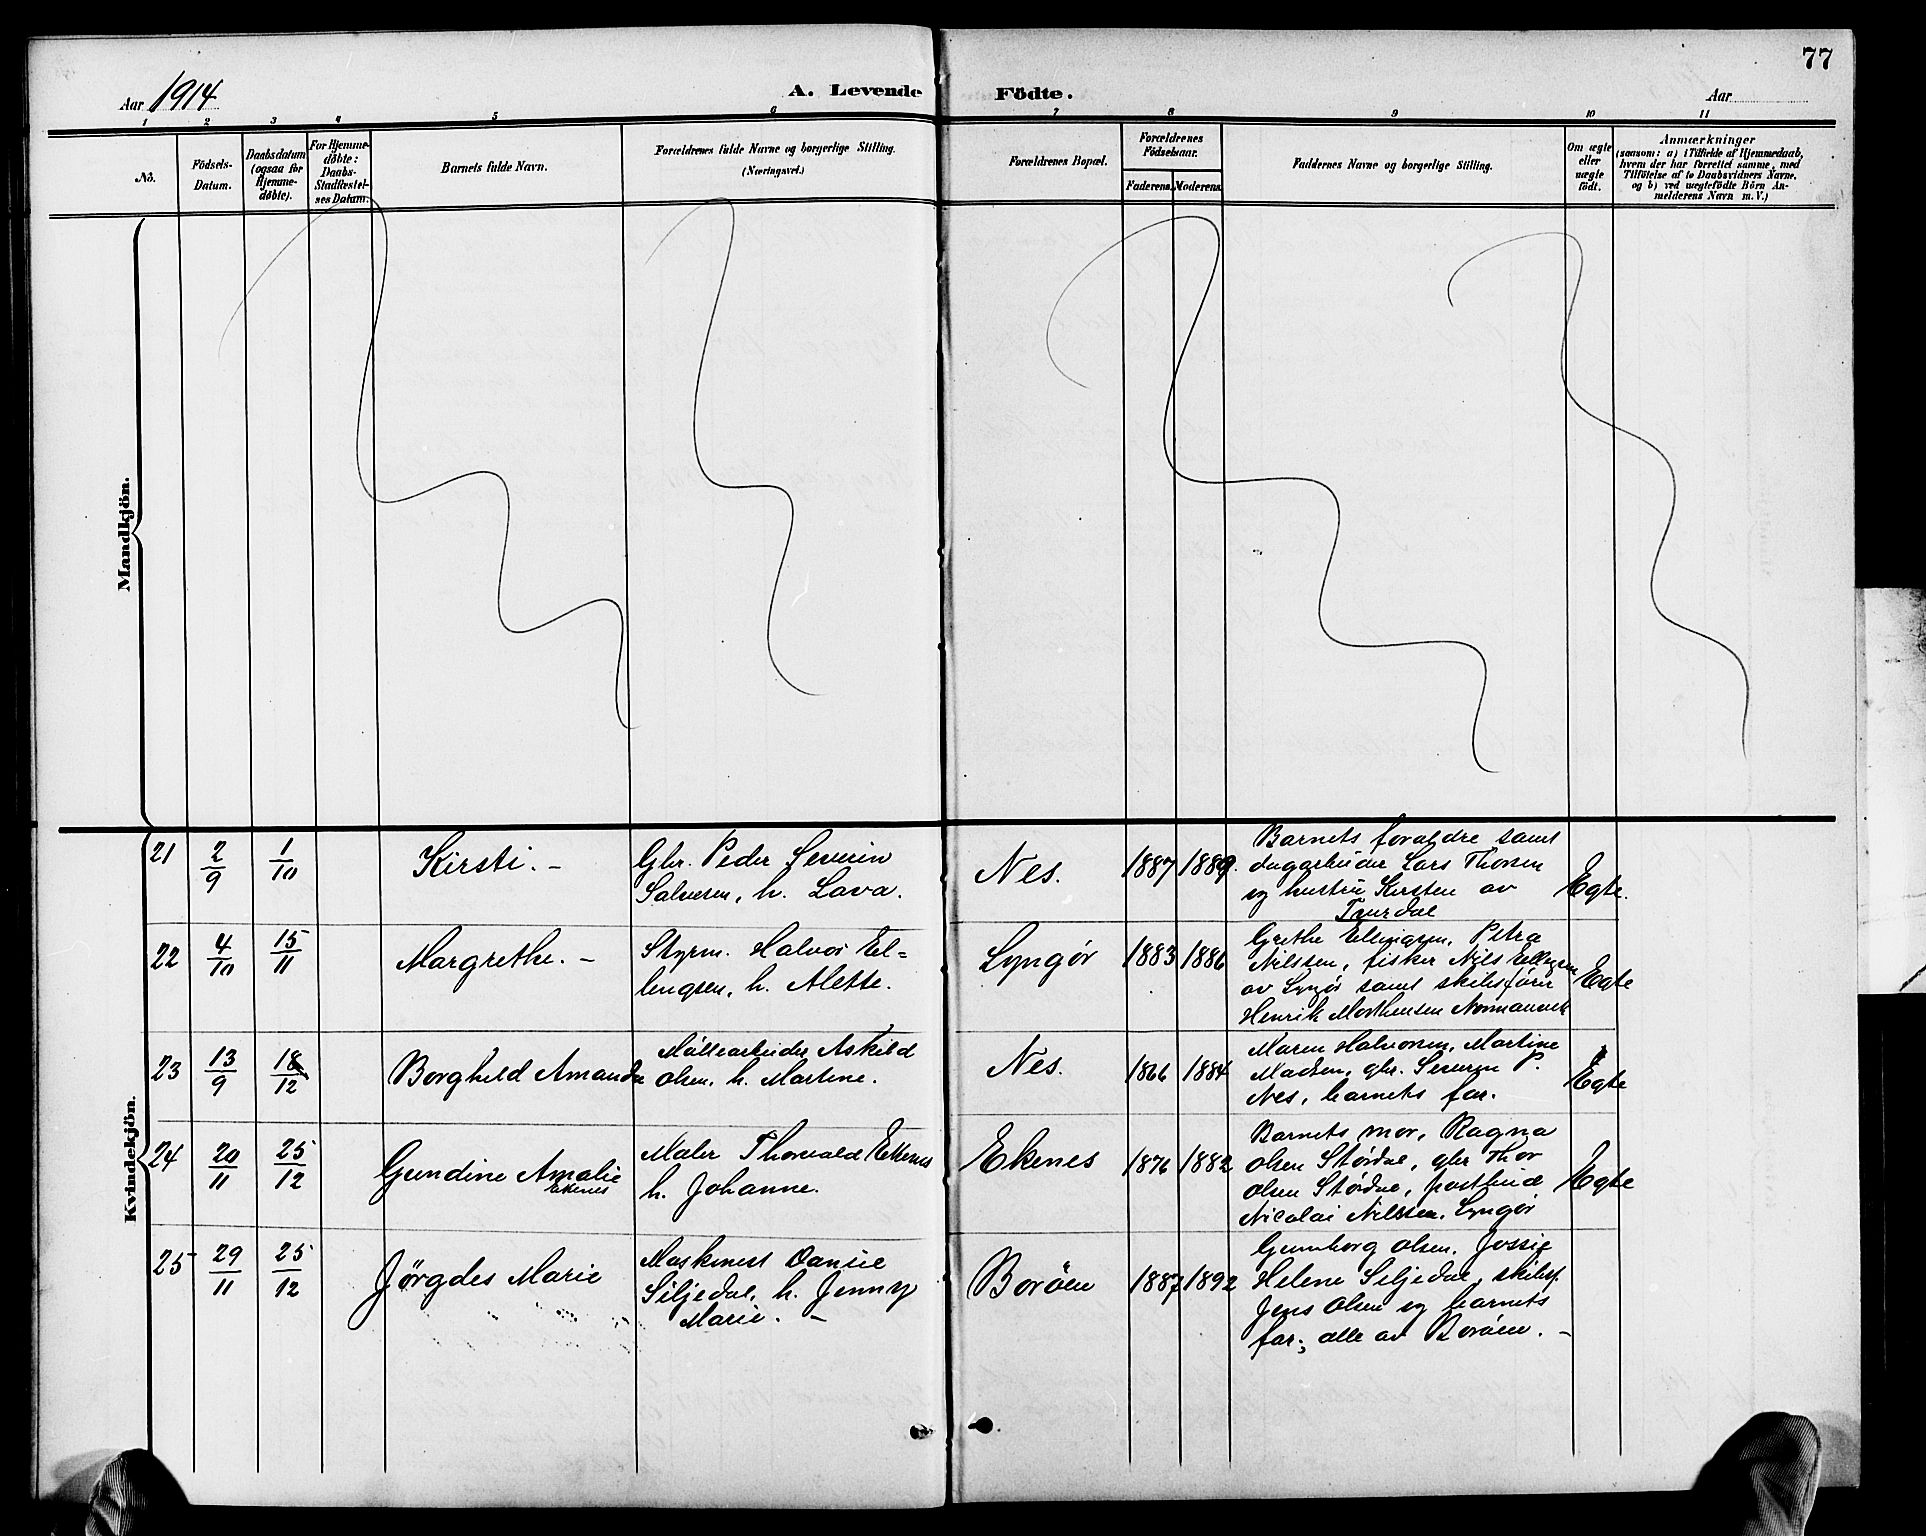 77
Aar 1914
A. Levende Födte.
Aar
1 2 3 4 5 6 7 8 9 10 11
No.
Födsels-
Datum.
Daabsdatum
(ogsaa for
Hjemme-
døbte).
For Hjemme-
døbte:
Daabs-
Stadfestel-
ses Datum.
Barnets fulde Navn.
Forældrenes fulde Navne og borgerlige Stilling.
(Næringsvei.)
Forældrenes Bopæl.
Forældrenes
Födselsaar.
Faderens.
Moderens.
Faddernes Navne og borgerlige Stilling.
Om ægte
eller
uægte
født.
Anmærkninger
(saasom: a) i Tilfælde af Hjemmedaab,
hvem der har forrettet samme, med
Tilföielse af to Daabsvidners Navne,
og b) ved uægtefödte Börn An-
melderens Navn m. V.)
Mandkjön.
Kvindekjön.
21
2/9
1/10
Kirsti. -
Gbr. Peder Severin
Salvesen, h. Lava.
Nes.
1887
1889.
Barnets forældre samt
dagarbeider Lars Thorsen
og hustru Kirsten av
Egte.
22
4/10
15/11
Margrethe. -
Styrm. Halvor El=
lingsen, h. Alette.
Lyngör
1883
1886
Grethe Ellingsen, Petra
Nilssen, fisker Nils Ellingsen
av Lyngör samt skibsförer
Henrik Morthensen
Egte
23
13/9
18/12
Borghild Amanda
Möllearbeider Askild
Olsen, h. Martine.
Nes.
1866
1884
Maren Halvorsen, Martine
Madsen, gbr. Severin P.
Nes, barnets far.
Egte
24
20/11
25/12
Gundine Amalie
Ekenes
Maler Thorvald Ekenes
h. Johanne.
Ekenes
1876
1882
Barnets mor, Ragna
Olsen Stördal, gbr Thor
Olsen Stördal, postbud
Nicolai Nilssen, Lyngör
Egte
25
29/11
25/12
Jörgdes Marie
Maskinist Daniel
Siljedal, h. Jenny
Marie. -
Boröen
1887
1892
Gunborg Olsen, Jossie
Helene Siljedal, skibsf.
Jens Olsen og barnets
far; alle av Boröen. -